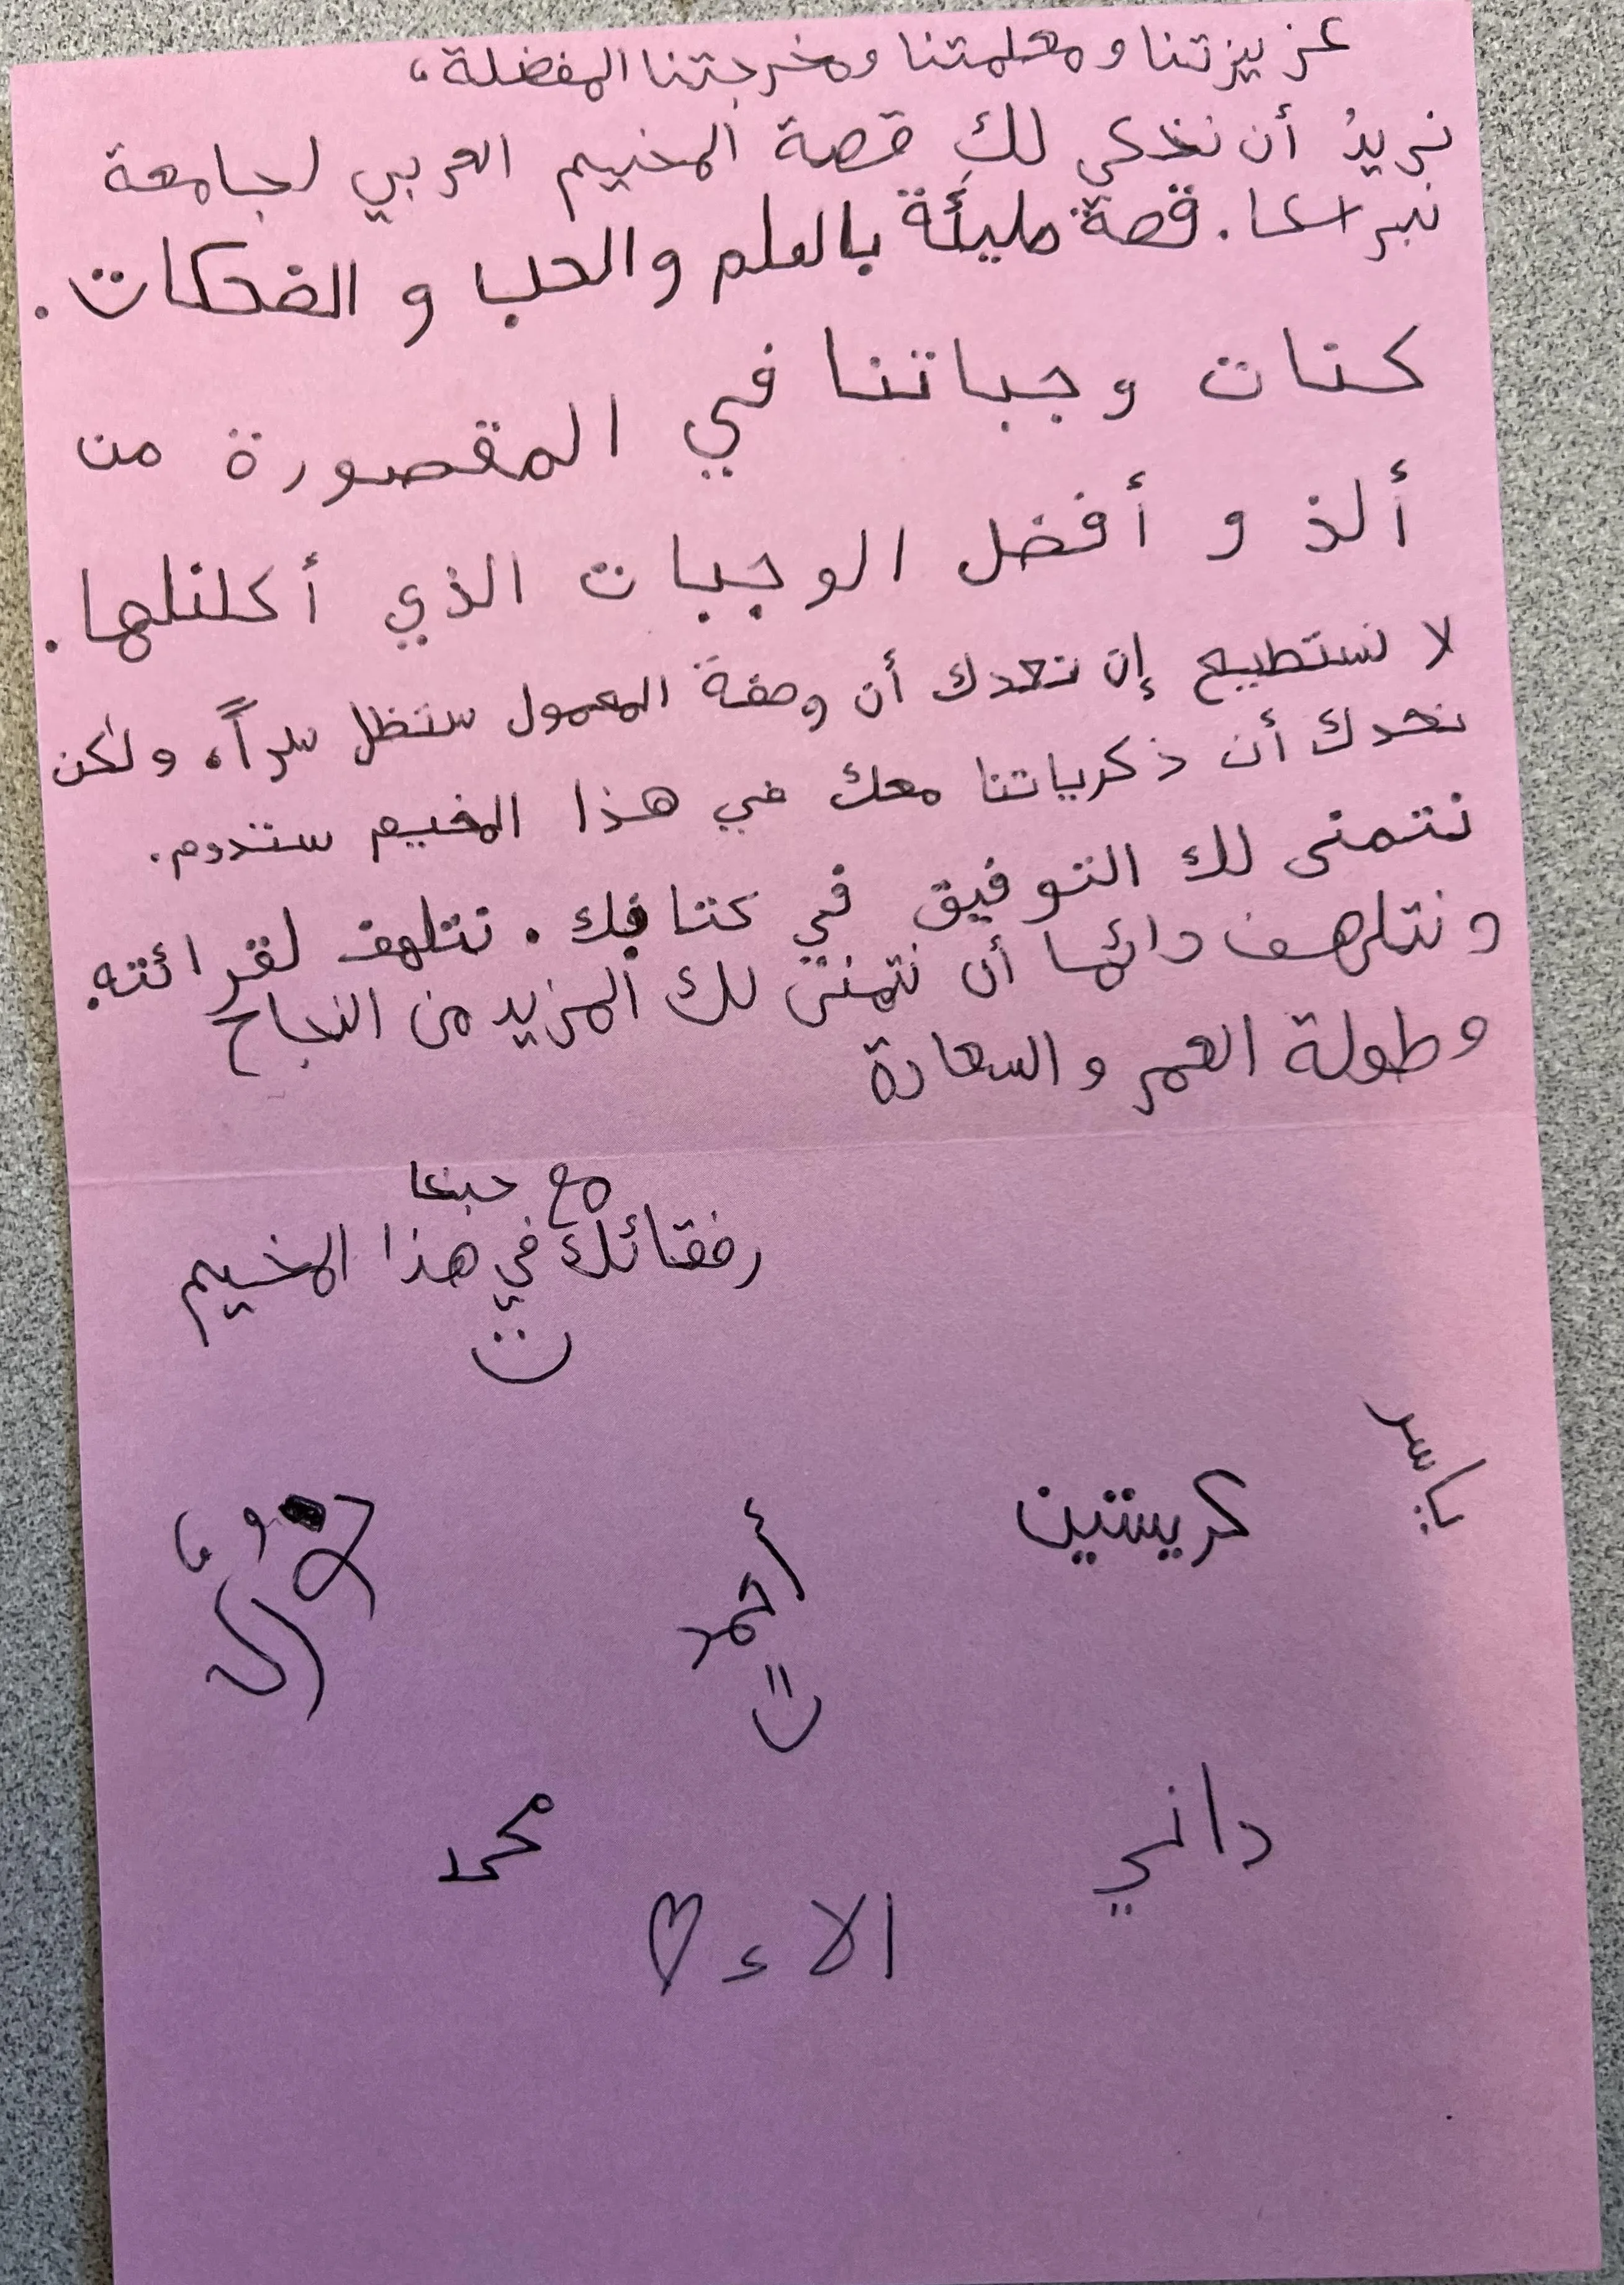 عزيزتنا و معلمتنا ومخرجتنا المفضلة،
نريدُ أن نحكي لكِ قصة المخيم العربي لجامعة
نبراسكا. قصة مليئة بالعلم والحب و الضحكات.
كنات وجباتنا في المقصورة من
ألذ و أفضل الوجبات الذي أكلنلها.
لا نستطيع إن نعدك أن وصفة المعمول ستظل سراً، ولكن
نعدك أن ذكرياتنا معك في هذا المخيم ستدوم.
نتمنى لك التوفيق في كتابك. نتلهف لقرائته.
ونتلهف دائما أن نتمنى لك المزيد من النجاح
وطولة العمر والسعادة
مع حبنا
رفقائك في هذا المخيم
ياسر
كريستين
أحمد
داني
محمد
الاء